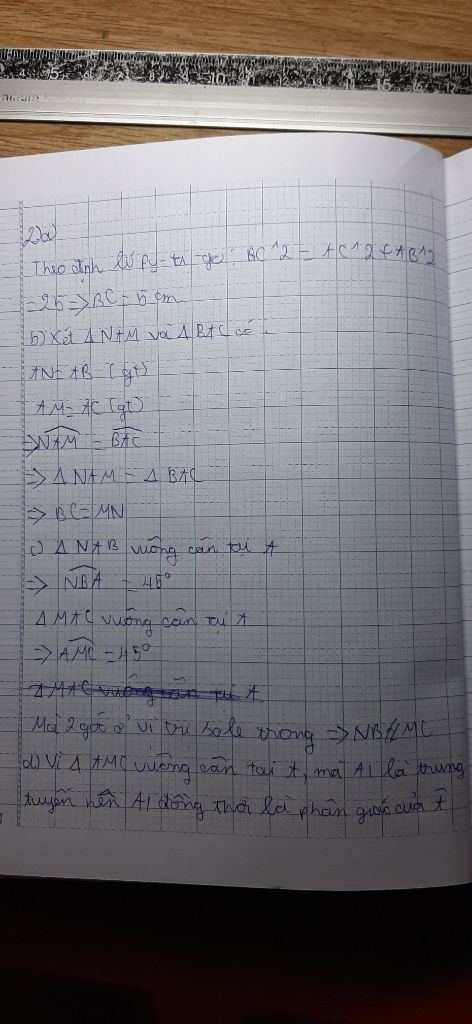 2)a)
Theo định lí py-ta-go: BC^2 = AC^2 + AB^2
= 25 => BC = 5 cm
b) Xét Δ NAM và Δ BAC có:
AN = AB (gt)
AM = AC (gt)
=> NAM = BAC
=> Δ NAM = Δ BAC
=> BC = MN
c) Δ NAB vuông cân tại A
=> NBA = 45°
Δ MAC vuông cân tại A
=> AMC = 45°
Δ MAC vuông cân tại A
Mà 2 góc ở vị trí sole trong => NB // MC
d) Vì Δ AMC vuông cân tại A, mà AI là trung
tuyến nên AI đồng thời là phân giác của A